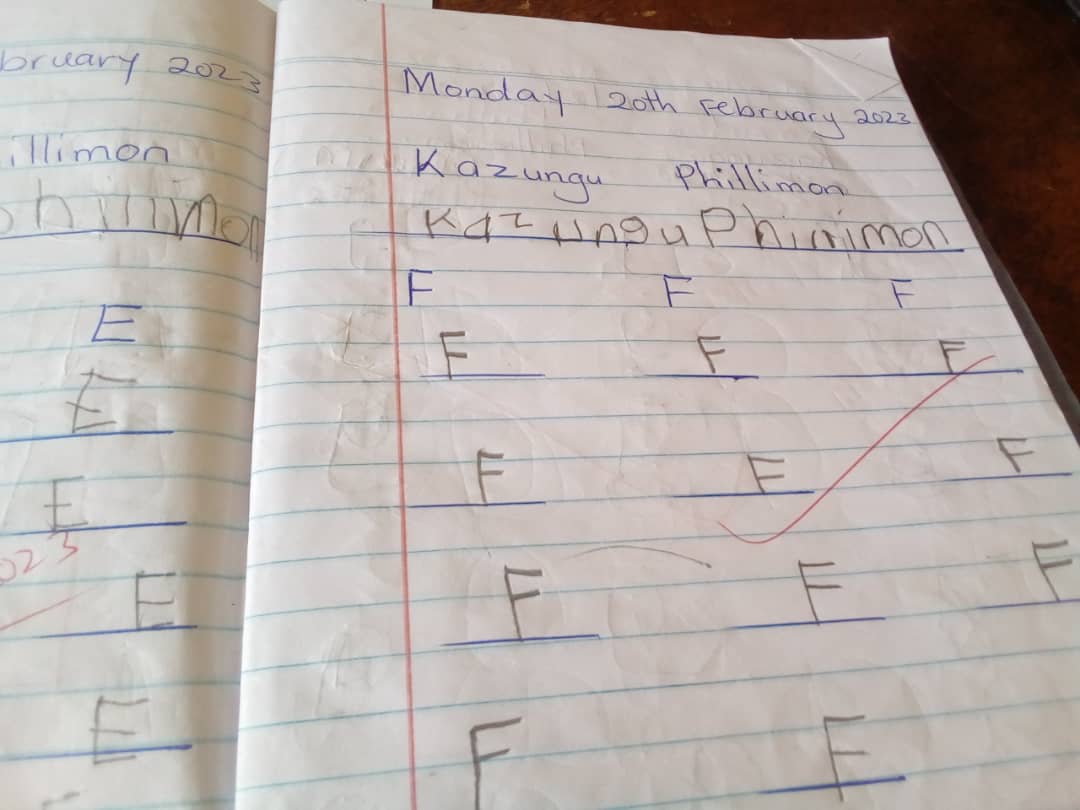 bruary 2023
illimon
phillimon
E
E
E
023
E
E
Monday 20th February 2023
Kazungu Phillimon
Kazungu Phirrimon
F F F
F F F
F F F
F F F
F F